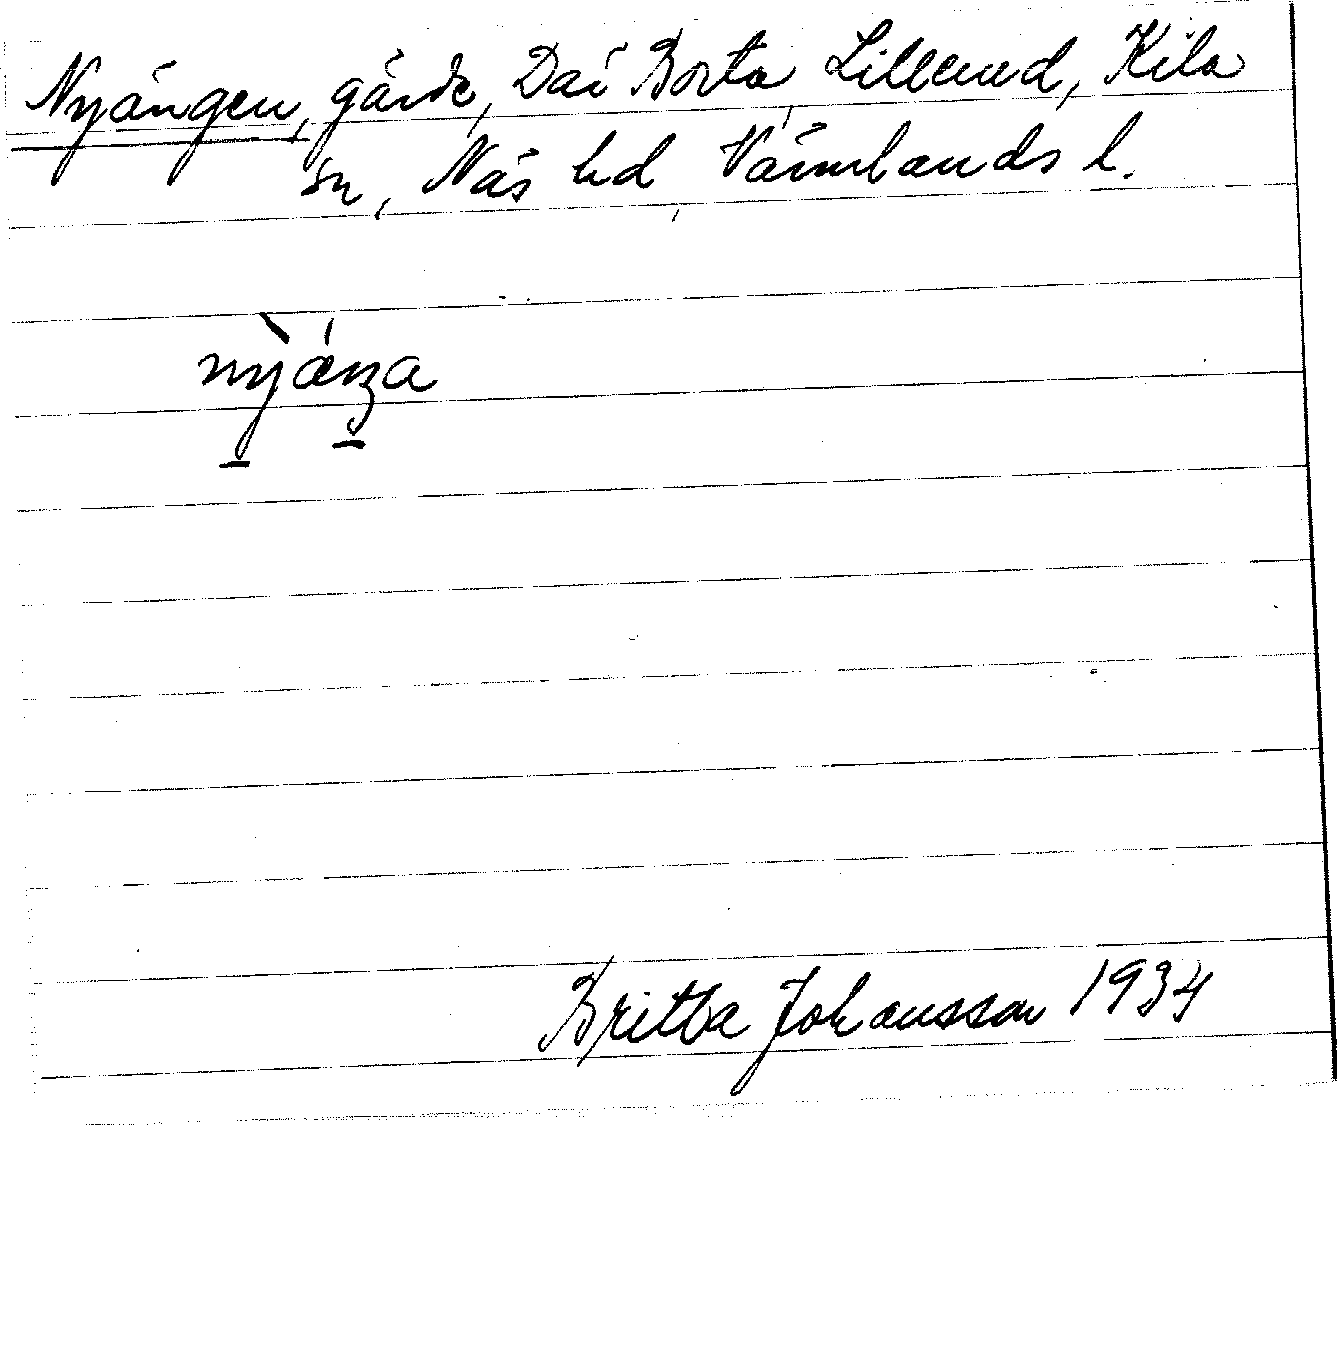 Nyängen, gärde, Där Borta, Lillerud, Kila
sn, Näs hd, Värmlands l.
nỳä́ŋa
Britta Johansson 1934